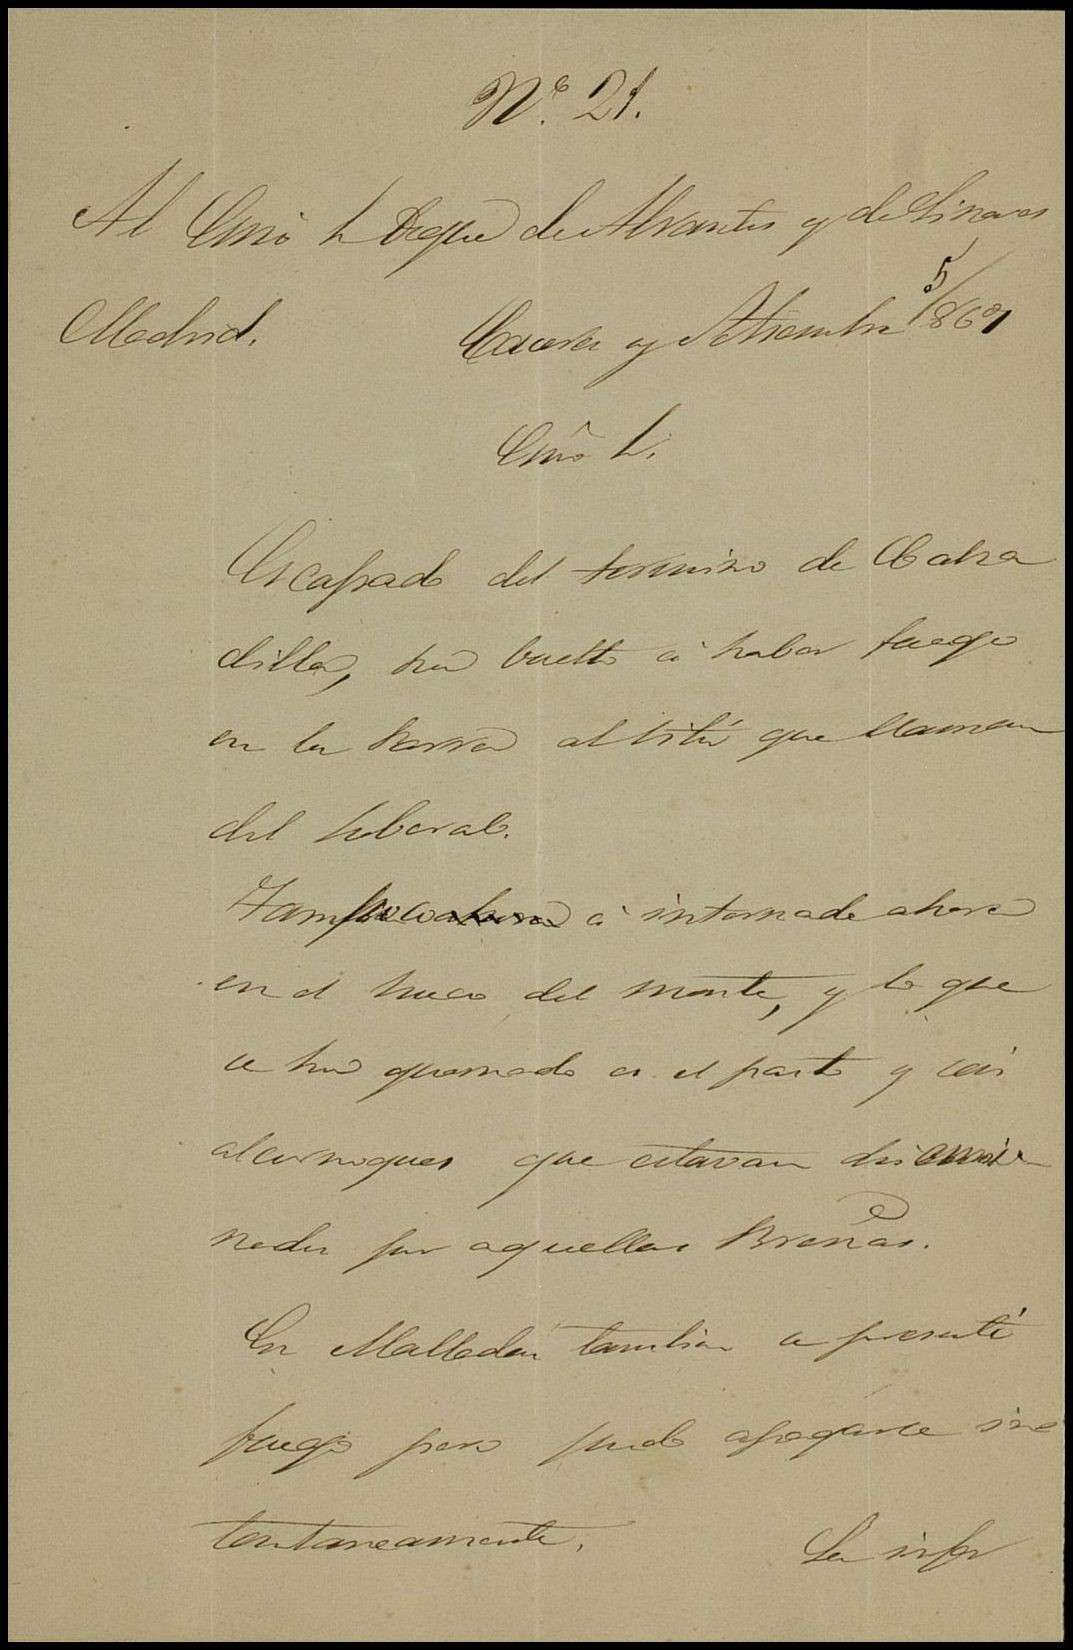 Nº. 21.
Al Exmô Sr Duque de Abrantes y de Linares
Madrid. Caceres y Setiembre 5/869
Exmô Sr.
Escapado del termino de Calza
dilla, ha vuelto á haber fuego
en la Sierra al sitio que llaman
del
Tampoco á internado ahora
en el hueco del monte, y lo que
se ha quemado es el pasto y seis
alcornoques que estavan disemi
nados por aquellas Breñas.
En Malladas tambien se presentó
fuego pero pudo apagarse ins
tantaneamente.